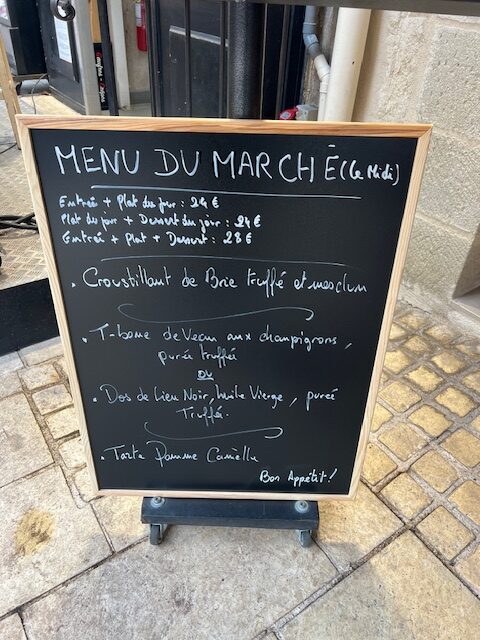 MENU DU MARCHÉ (Le Midi)
Entrée + Plat du jour : 24 €
Plat du jour + Dessert du jour : 24 €
Entrée + Plat + Dessert : 28 €
. Croustillant de Brie truffé et mesclun
. T-bone de Veau aux champignons,
purée truffée
OU
. Dos de Lieu Noir, huile Vierge, purée
Truffée.
. Tarte Pomme Cannelle
Bon Appétit !